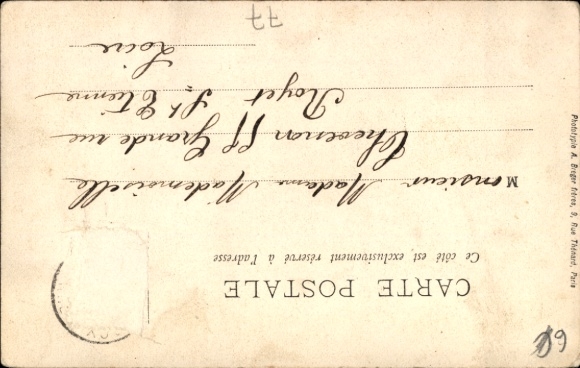 CARTE POSTALE
Ce côté est exclusivement réservé à l'adresse
Monsieur Madame Mademoiselle
Thevenon 55 Grande rue
Royet St Etienne
Loire
Phototypie A. Breger frères, 9, Rue Thénard, Paris
77